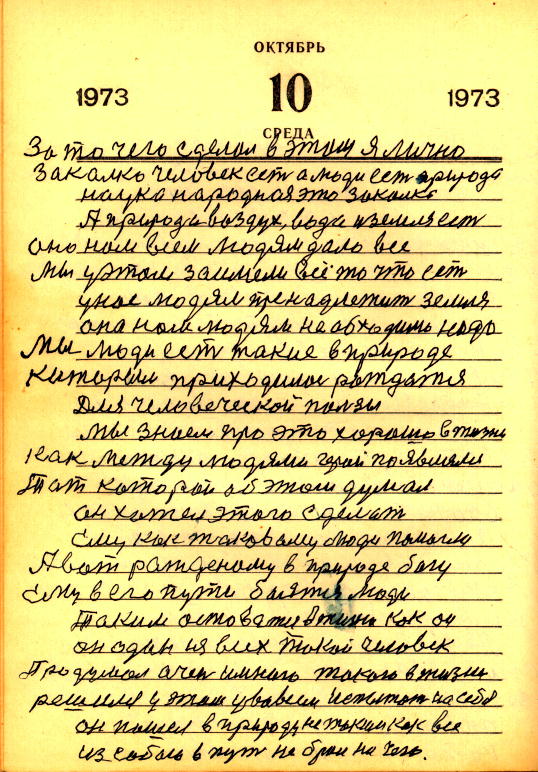 ОКТЯБРЬ
1973 10 1973
СРЕДА
За то чего сделал в этом я лично
Закалка человек ест а люди ест природа
наука народная это закалка
А природа воздух, вода и земля ест
оно ном всем людям дало все
Мы у этом заимели всё то что ест
у нас людям пренадлежит земля
она ном людям необходимо надо
Мы люди ест такие в природе
каторым приходилос рождатся
Для человеческой ползы
мы знаем про это хорошо в жизни
Как между людями герой появляли
Тат которой об этом думал
он хотел этого сделат
Ему как таковому люди помогли
А вот рожденому в природе богу
Ему в его пути боятся люди
Таким оставатся в жизни как он
он один из всех такой человек
Продумал очен много такого в жизни
решился у этом у вовсем испытат на себя
он пошел в природу не таким как все
из собою в пут не брал на чего.